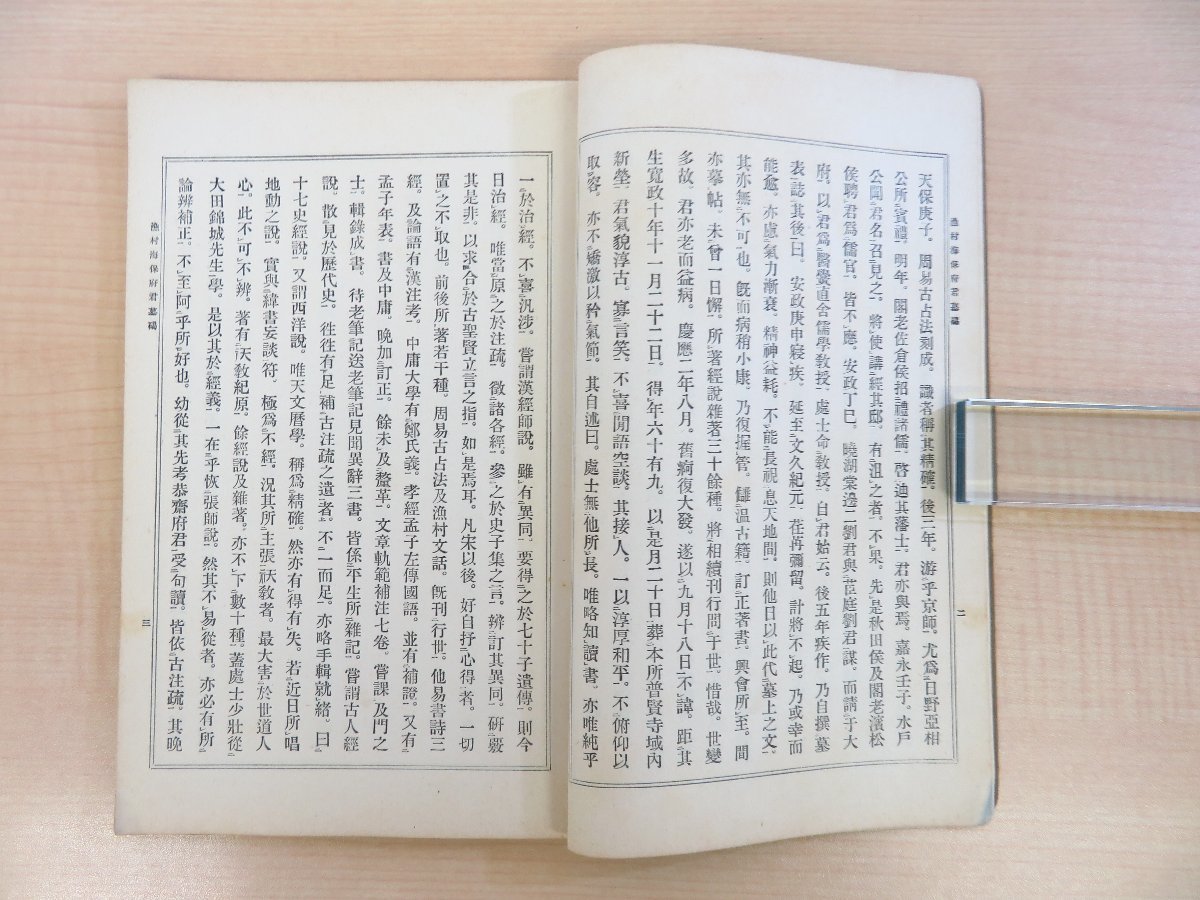 天保庚子。周易古占法刻成。識者稱其精確。後三年。游乎京師。尤爲日野亞相
公所賓禮。明年。閣老佐倉侯招禮諸儒。啓迪其藩士。君亦與焉。嘉永壬子。水戶
公聞君名召見之。將使講經其邸。有沮之者。不果。先是秋田侯及閣老濱松
侯聘君爲儒官。皆不應。安政丁巳。曉湖棠邊二劉君與茝庭劉君謀。而請于大
府。以君爲醫黌直舍儒學敎授。處士命敎授。自君始云。後五年疾作。乃自撰墓
表。誌其後曰。安政庚申寢疾。延至文久紀元。荏苒彌留。計將不起。乃或幸而
能愈。亦慮氣力漸衰。精神益耗。不能長視息天地間。則他日以此代墓上之文。
其亦無不可也。旣而病稍小康。乃復握管。讎溫古籍。訂正著書。興會所至。間
亦摹帖。未曾一日懈。所著經說雜著三十餘種。將相續刊行問于世。惜哉。世變
多故。君亦老而益病。慶應二年八月。舊痾復大發。遂以九月十八日不諱。距其
生寬政十年十一月二十二日。得年六十有九。以是月二十日葬本所普賢寺域內
新塋。君氣貌淳古。寡言笑。不喜閒語空談。其接人。一以淳厚和平。不俯仰以
取容。亦不矯激以矜氣節。其自述曰。處士無他所長。唯略知讀書。亦唯純乎
二
漁村海保府君墓碣
一於治經。不喜汎涉。嘗謂漢經師說。雖有異同。要得之於七十子遺傳。則今
日治經。唯當原之於注疏。徵諸各經。參之於史子集之言。辨訂其異同。硏覈
其是非。以求合於古聖賢立言之指。如是焉耳。凡宋以後。好自抒心得者。一切
置之不取也。前後所著若干種。周易古占法及漁村文話。旣刊行世。他易書詩三
經。及論語有漢注考。中庸大學有鄭氏義。孝經孟子左傳國語。並有補證。又有
孟子年表。書及中庸。晚加訂正。餘未及釐革。文章軌範補注七卷。嘗課及門之
士。輯錄成書。待老筆記送老筆記見聞異辭三書。皆係平生所雜記。嘗謂古人經
說。散見於歷代史。往往有足補古注疏之遺者。不一而足。亦略手輯就緒。曰
十七史經說。又謂西洋說。唯天文曆學。稱爲精確。然亦有得有失。若近日所唱
地動之說。實與緯書妄談符。極爲不經。況其所主張祆敎者。最大害於世道人
心。此不可不辨。著有祆敎紀原。餘經說及雜著。亦不下數十種。蓋處士少壯從
大田錦城先生學。是以其於經義。一在乎恢張師說。然其不易從者。亦必有所
論辨補正。不至阿乎所好也。幼從其先考恭齋府君受句讀。皆依古注疏。其晚
三
漁村海保府君墓碣